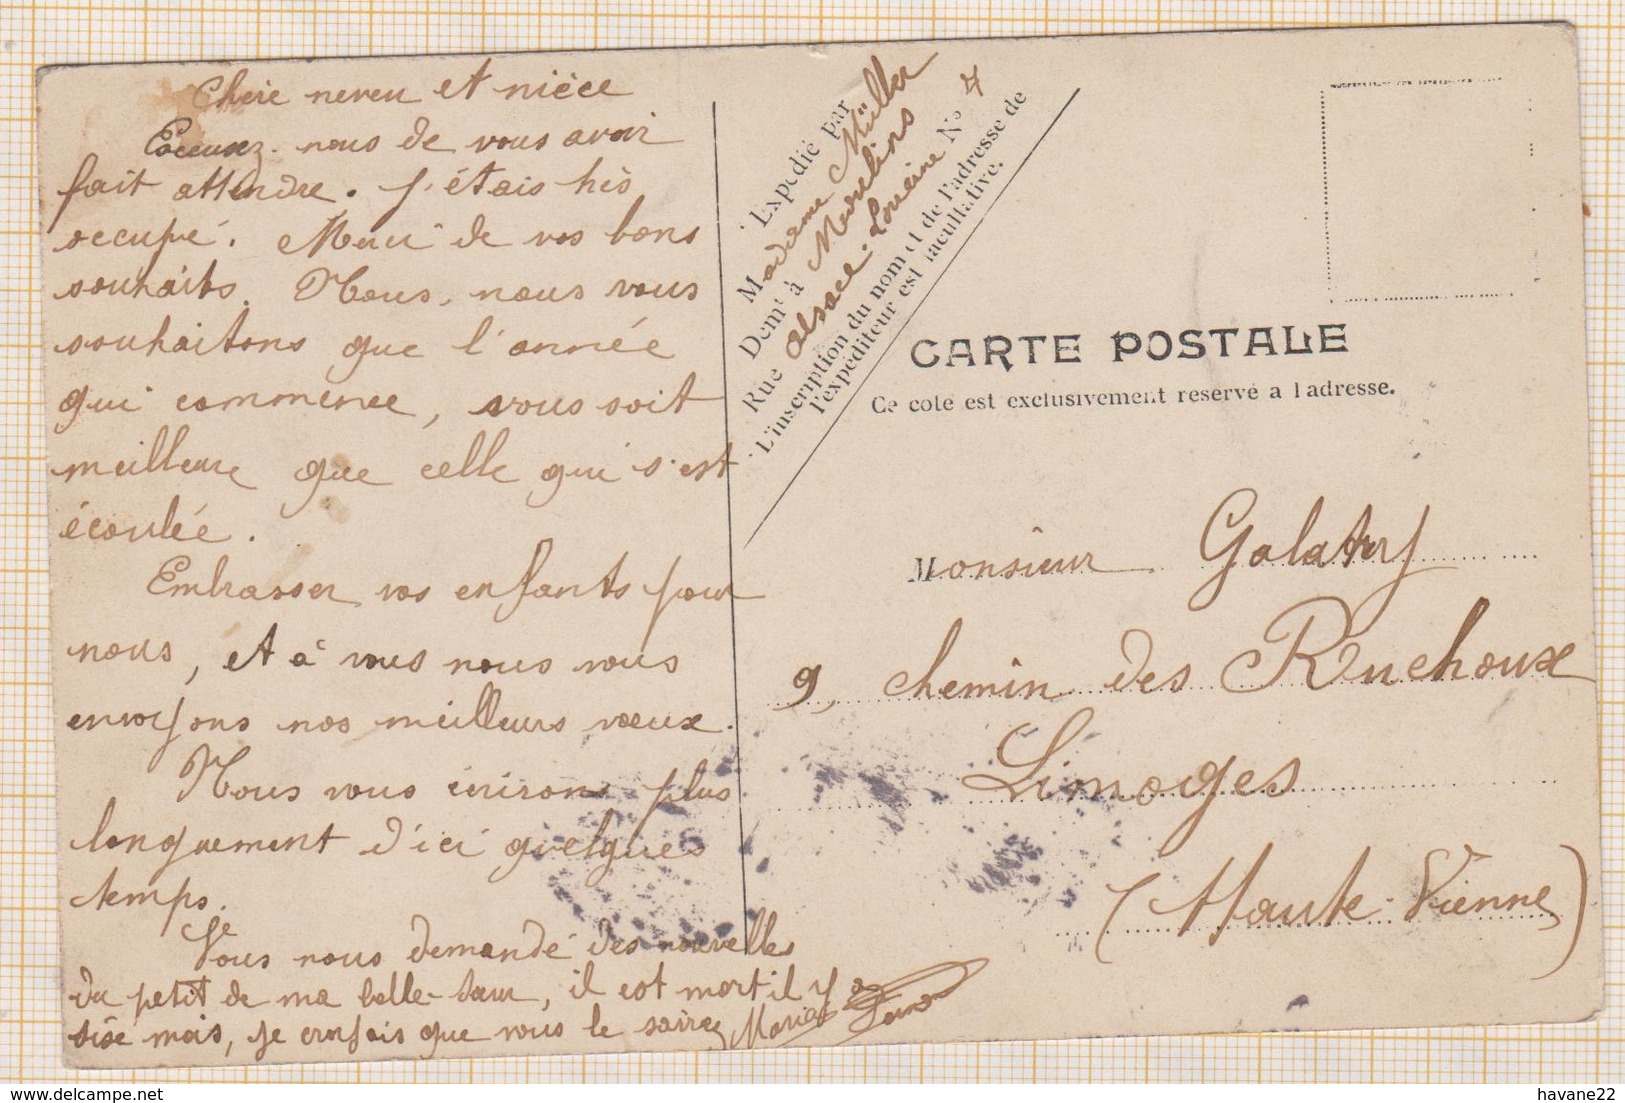 Chère neveu et nièce
Excusez-nous de vous avoir
fait attendre. J'étais très
occupé. Merci de vos bons
souhaits. Nous, nous vous
souhaitons que l'année
qui commence, vous soit
meilleure que celle qui s'est
écoulée.
Embrasser vos enfants pour
nous, et à vous nous vous
envoyons nos meilleurs vœux.
Nous vous écrirons plus
longuement d'ici quelques
temps.
Vous nous demandé des nouvelles
du petit de ma belle-sœur, il est mort il y a
sise mois, je croyais que vous le saviez Maria
Expédié par
Madame Müller
Demt à Moulins
Rue Alsace-Loreine No 7
L'inscription du nom et de l'adresse de
l'expéditeur est facultative.
CARTE POSTALE
Ce coté est exclusivement reservé a l'adresse.
Monsieur Galatry
9, chemin des Ruchoux
Limoges
(Haute-Vienne)
havane22